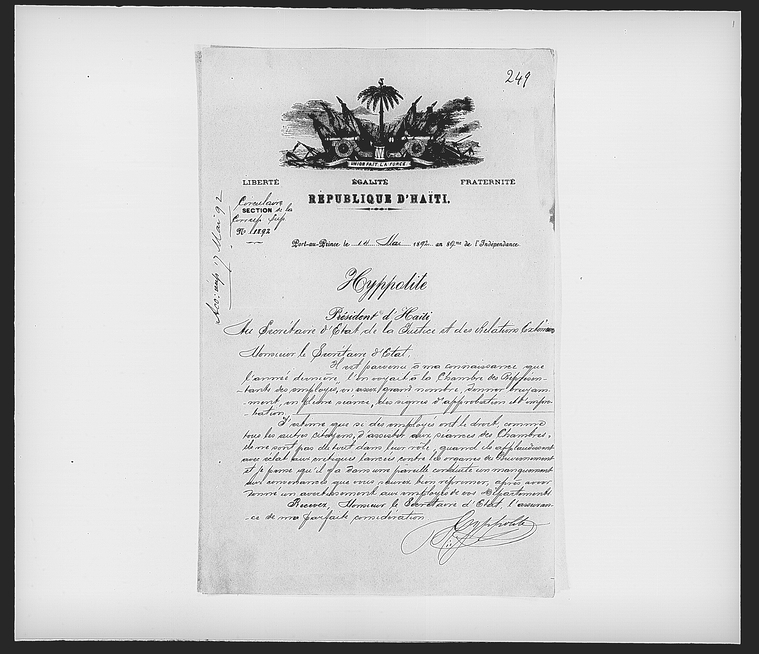 249
UNION FAIT LA FORCE.
LIBERTÉ ÉGALITÉ FRATERNITÉ
RÉPUBLIQUE D'HAÏTI.
Circulaire
SECTION de la
Nº 1892
17 Mai 92
Port-au-Prince le 14 Mai 1892 an 89me de l'Indépendance.
Hyppolite
Président d'Haïti
Au Secrétaire d'Etat de la Justice et des Relations Extérieures
Monsieur le Secrétaire d'Etat,
Il est parvenu à ma connaissance que
l'année dernière, l'on voyait à la Chambre des Représen-
-tants des employés, en assez grand nombre, donner bruyam-
-ment, en pleine séance, des signes d'approbation et d'impro-
-bation.
J'estime que si des employés ont le droit, comme
tous les autres citoyens, d'assister aux séances des Chambres,
ils ne sont pas du tout dans leur rôle, quand ils applaudissent
avec éclat aux critiques lancées contre les organes du Gouvernement
et je pense qu'il y a dans une pareille conduite un manquement
aux convenances que vous saurez bien réprimer, après avoir
donné un avertissement aux employés de vos Départements.
Recevez, Monsieur le Secrétaire d'Etat, l'assuran-
-ce de ma parfaite considération
Hyppolite